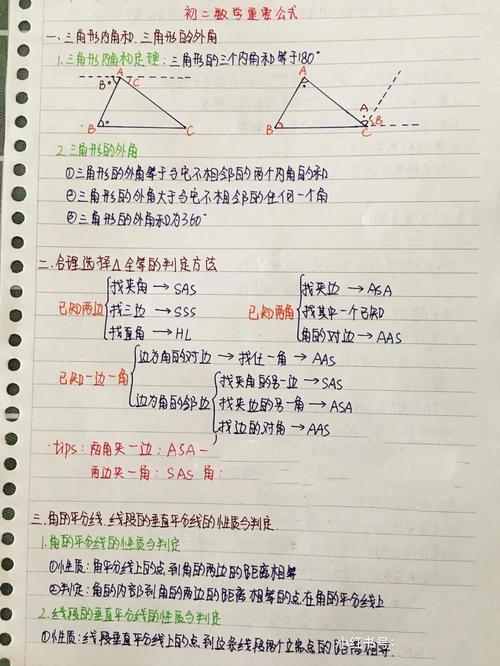 初二数学重要公式
一、三角形内角和、三角形的外角
1.三角形内角和定理：三角形的三个内角和等于180°
A
B
C
B
C
A
A
B
B
C
2.三角形的外角
①三角形的外角等于与它不相邻的两个内角的和
②三角形的外角大于与它不相邻的任何一个角
③三角形的外角和为360°
二、合理选择△全等的判定方法
已知两边
找夹角→SAS
找三边→SSS
找直角→HL
已知两角
找夹边→ASA
找其中一个已知
角的对边→AAS
已知一边一角
边为角的对边→找任一角→AAS
边为角的邻边
找夹角的另一边→SAS
找夹边的另一角→ASA
找边的对角→AAS
tips：两角夹一边：ASA
两边夹一角：SAS 角：
三.角的平分线、线段的垂直平分线的性质与判定
1.角的平分线的性质与判定
①性质：角平分线上的点到角的两边的距离相等
②判定：角的内部到角的两边的距离相等的点在角的平分线上
2.线段的垂直平分线的性质与判定
①性质：线段垂直平分线上的点到这条线段两个端点的距离相等.
小红书号：